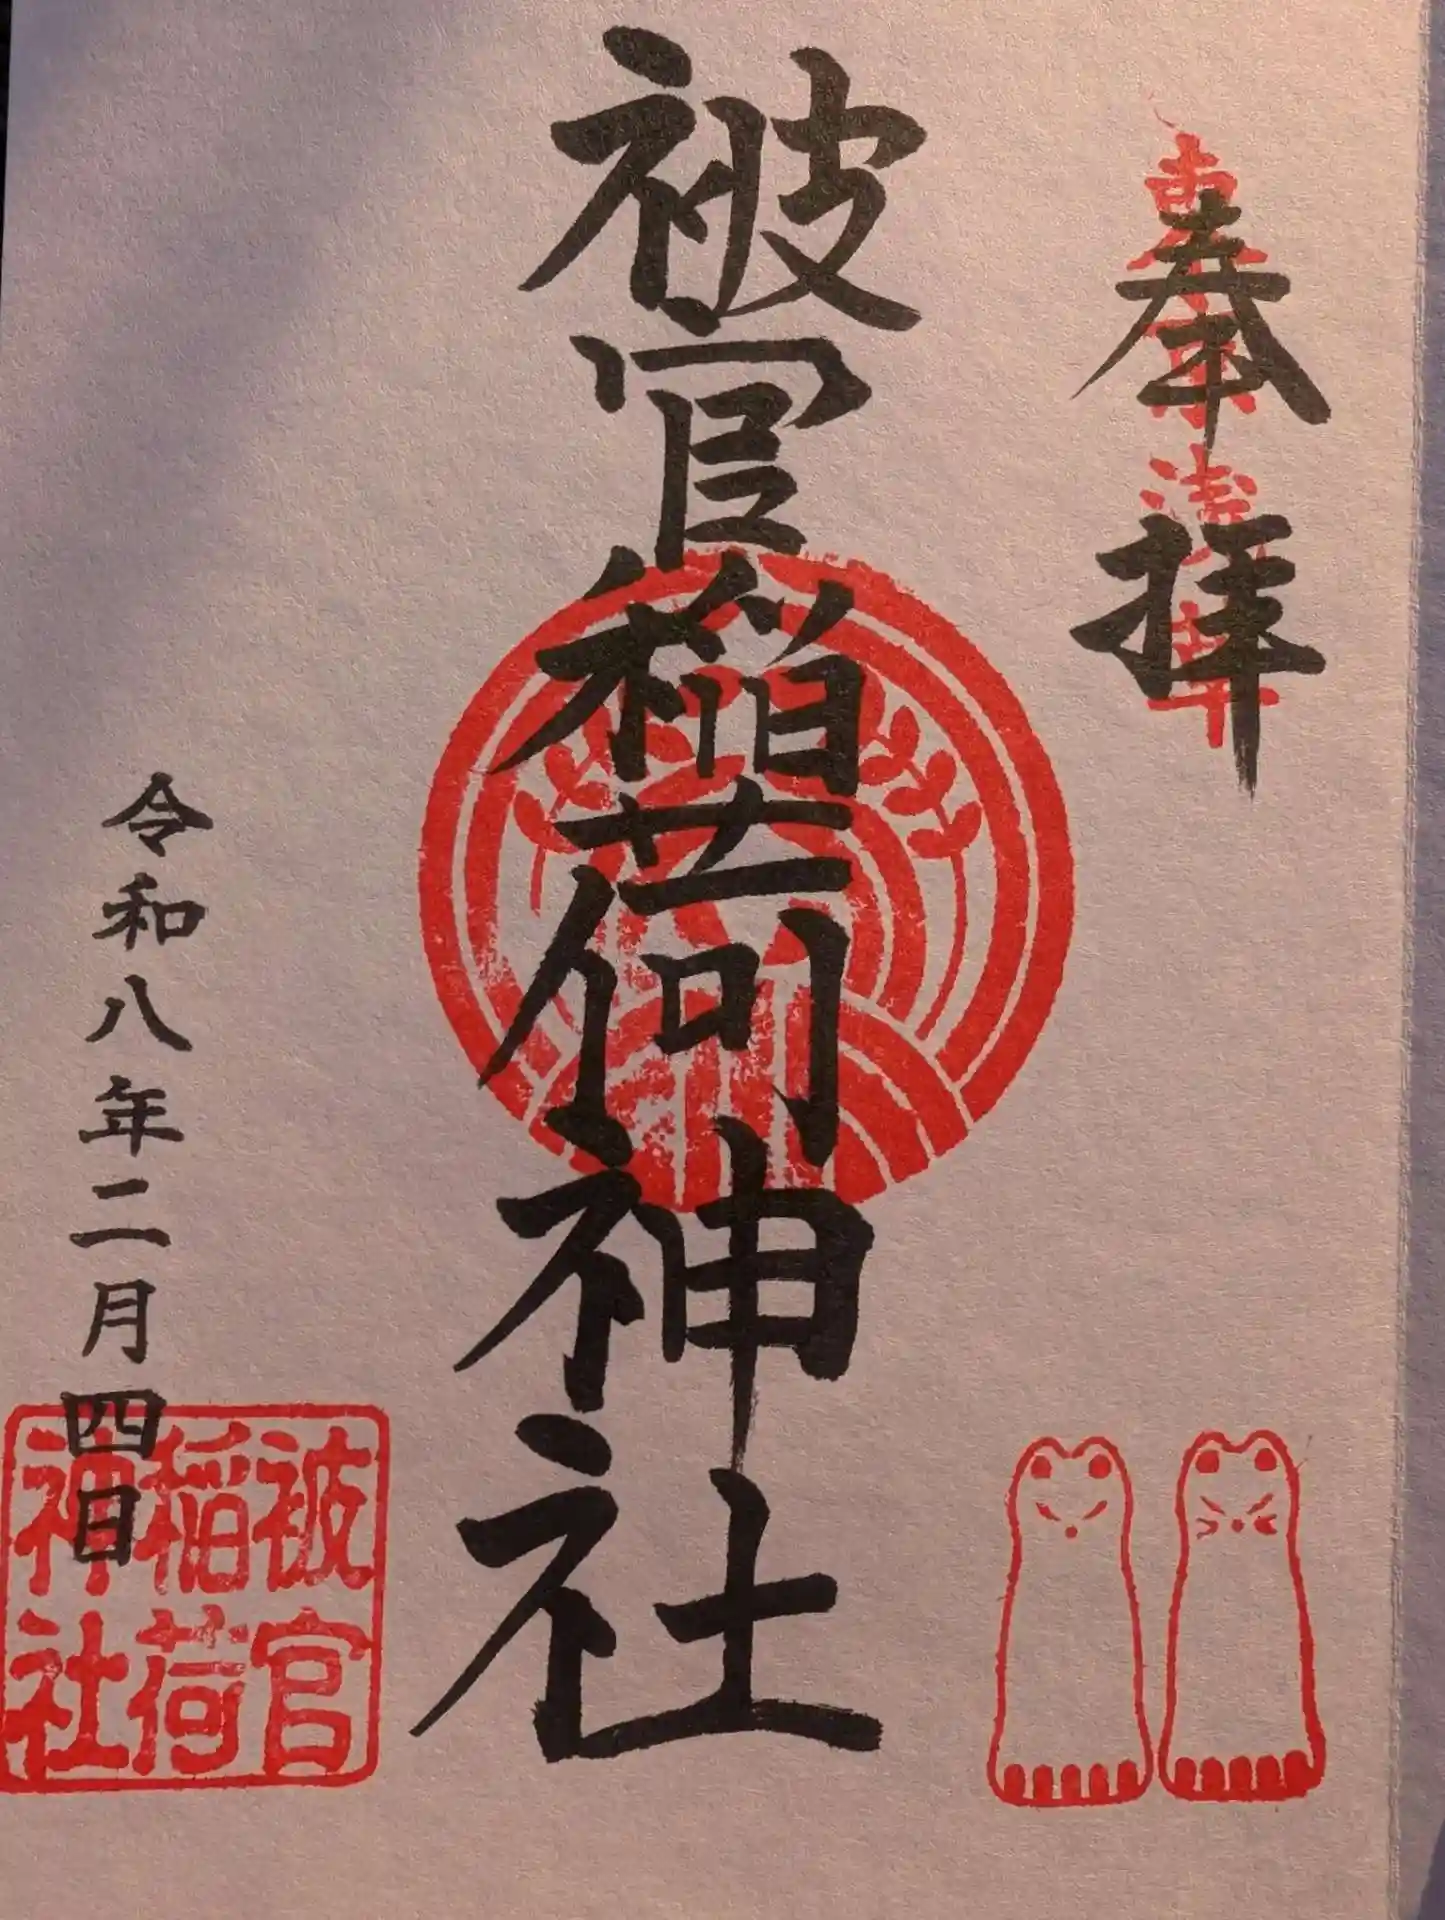 奉拝
東京浅草
被官稲荷神社
令和八年二月四日
被官
稲荷
神社